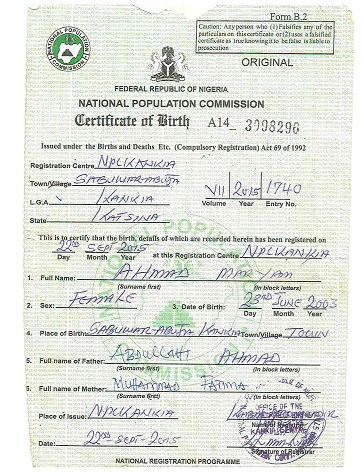 Form B.2
Caution: Any person who (1) Falsifies any of the
particulars on this certificate or (2) uses a falsified
certificate as true knowing it to be false is liable to
prosecution
ORIGINAL
FEDERAL REPUBLIC OF NIGERIA
NATIONAL POPULATION COMMISSION
Certificate of Birth A14_ 3998296
Issued under the Births and Deaths Etc. (Compulsory Registration) Act 69 of 1992
Registration Centre NPC/KANKIA
Town/Village SABUWAR-ABUJA
VII 2015 1740
L.G.A KANKIA Volume Year Entry No.
State KATSINA
This is to certify that the birth, details of which are recorded herein has been registered on
22ND SEPT 2015 at this Registration Centre NPC/KANKIA
Day Month Year
1. Full Name: AHMAD MARYAM
(Surname first) (In block letters)
2. Sex: FEMALE 3. Date of Birth: 23RD JUNE 2003
Day Month Year
4. Place of Birth: SABUWAR-ABUJA KANKIA Town/Village TOWN
5. Full name of Father: ABDULLAHI AHMAD
(Surname first) (In block letters)
6. Full name of Mother: MUHAMMAD FATIMA
(Surname first) (In block letters)
Place of Issue: NPC/KANKIA
OFFICE OF THE
Date: 22ND-SEPT-2015 Signature of Registrar
NATIONAL REGISTRATION PROGRAMME